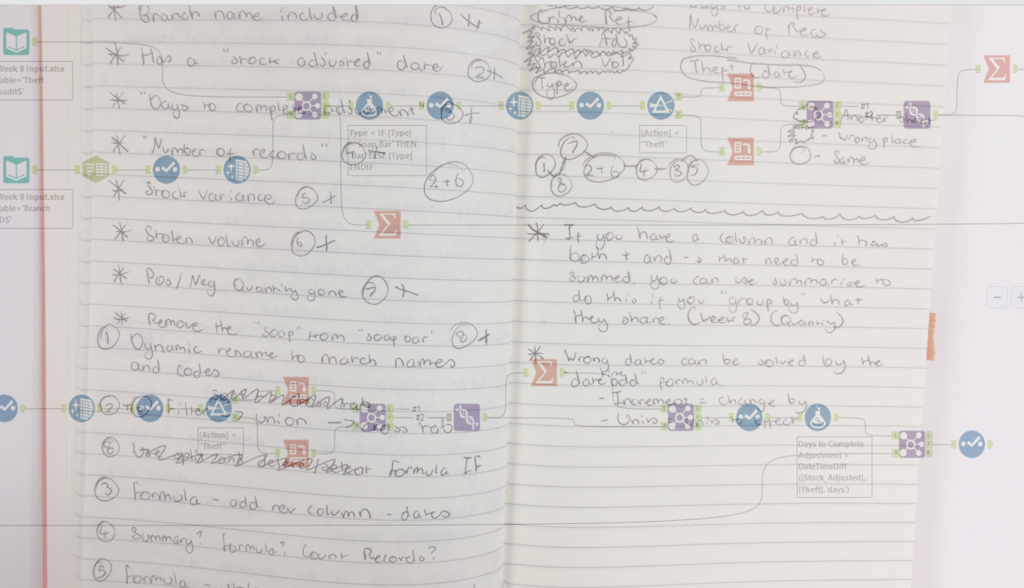 * Branch name included ① *
* Has a "stock adjusted" date ②*
* "Days to complete adjustment" ③ +
* "Number of records" ④ +
②+⑥
* Stock variance ⑤ +
* Stolen volume ⑥ +
* Pos/Neg Quantity gone ⑦ *
* Remove the "soap" from "soap bar" ⑧ +
① Dynamic rename to match names
and codes
② + ⑥ Filter → union → cross tab
⑧ formula IF
③ Formula - add new column - dates
④ Summary? Formula? Count Records?
⑤ Formula -
Crime Ref
Stock Adj
Stolen Vol
Type
Days to Complete
Number of Recs
Stock Variance
Theft (date)
Another
- wrong place
- Same
① ⑦ ⑧ 2+6 ④ - ③ ⑤
* If you have a column and it has
both + and -s that need to be
summed, you can use summarise to
do this if you "group by" what
they share. (Week 8) (Quantity)
* Wrong dates can be solved by the
"date add" formula.
- Increment = change by
- Units = units to effect
Week 8 Input.xlsx
Table='Theft
Audit$'
Week 8 Input.xlsx
Table='Branch
ID$'
Type = IF [Type]
"Soap Bar" THEN
"Bar" ELSE [Type]
ENDIF
[Action] =
"Theft"
#1
#2
[Action] =
"Theft"
#1
#2
Days to Complete
Adjustment =
DateTimeDiff
([Stock_Adjusted],
[Theft],'days')